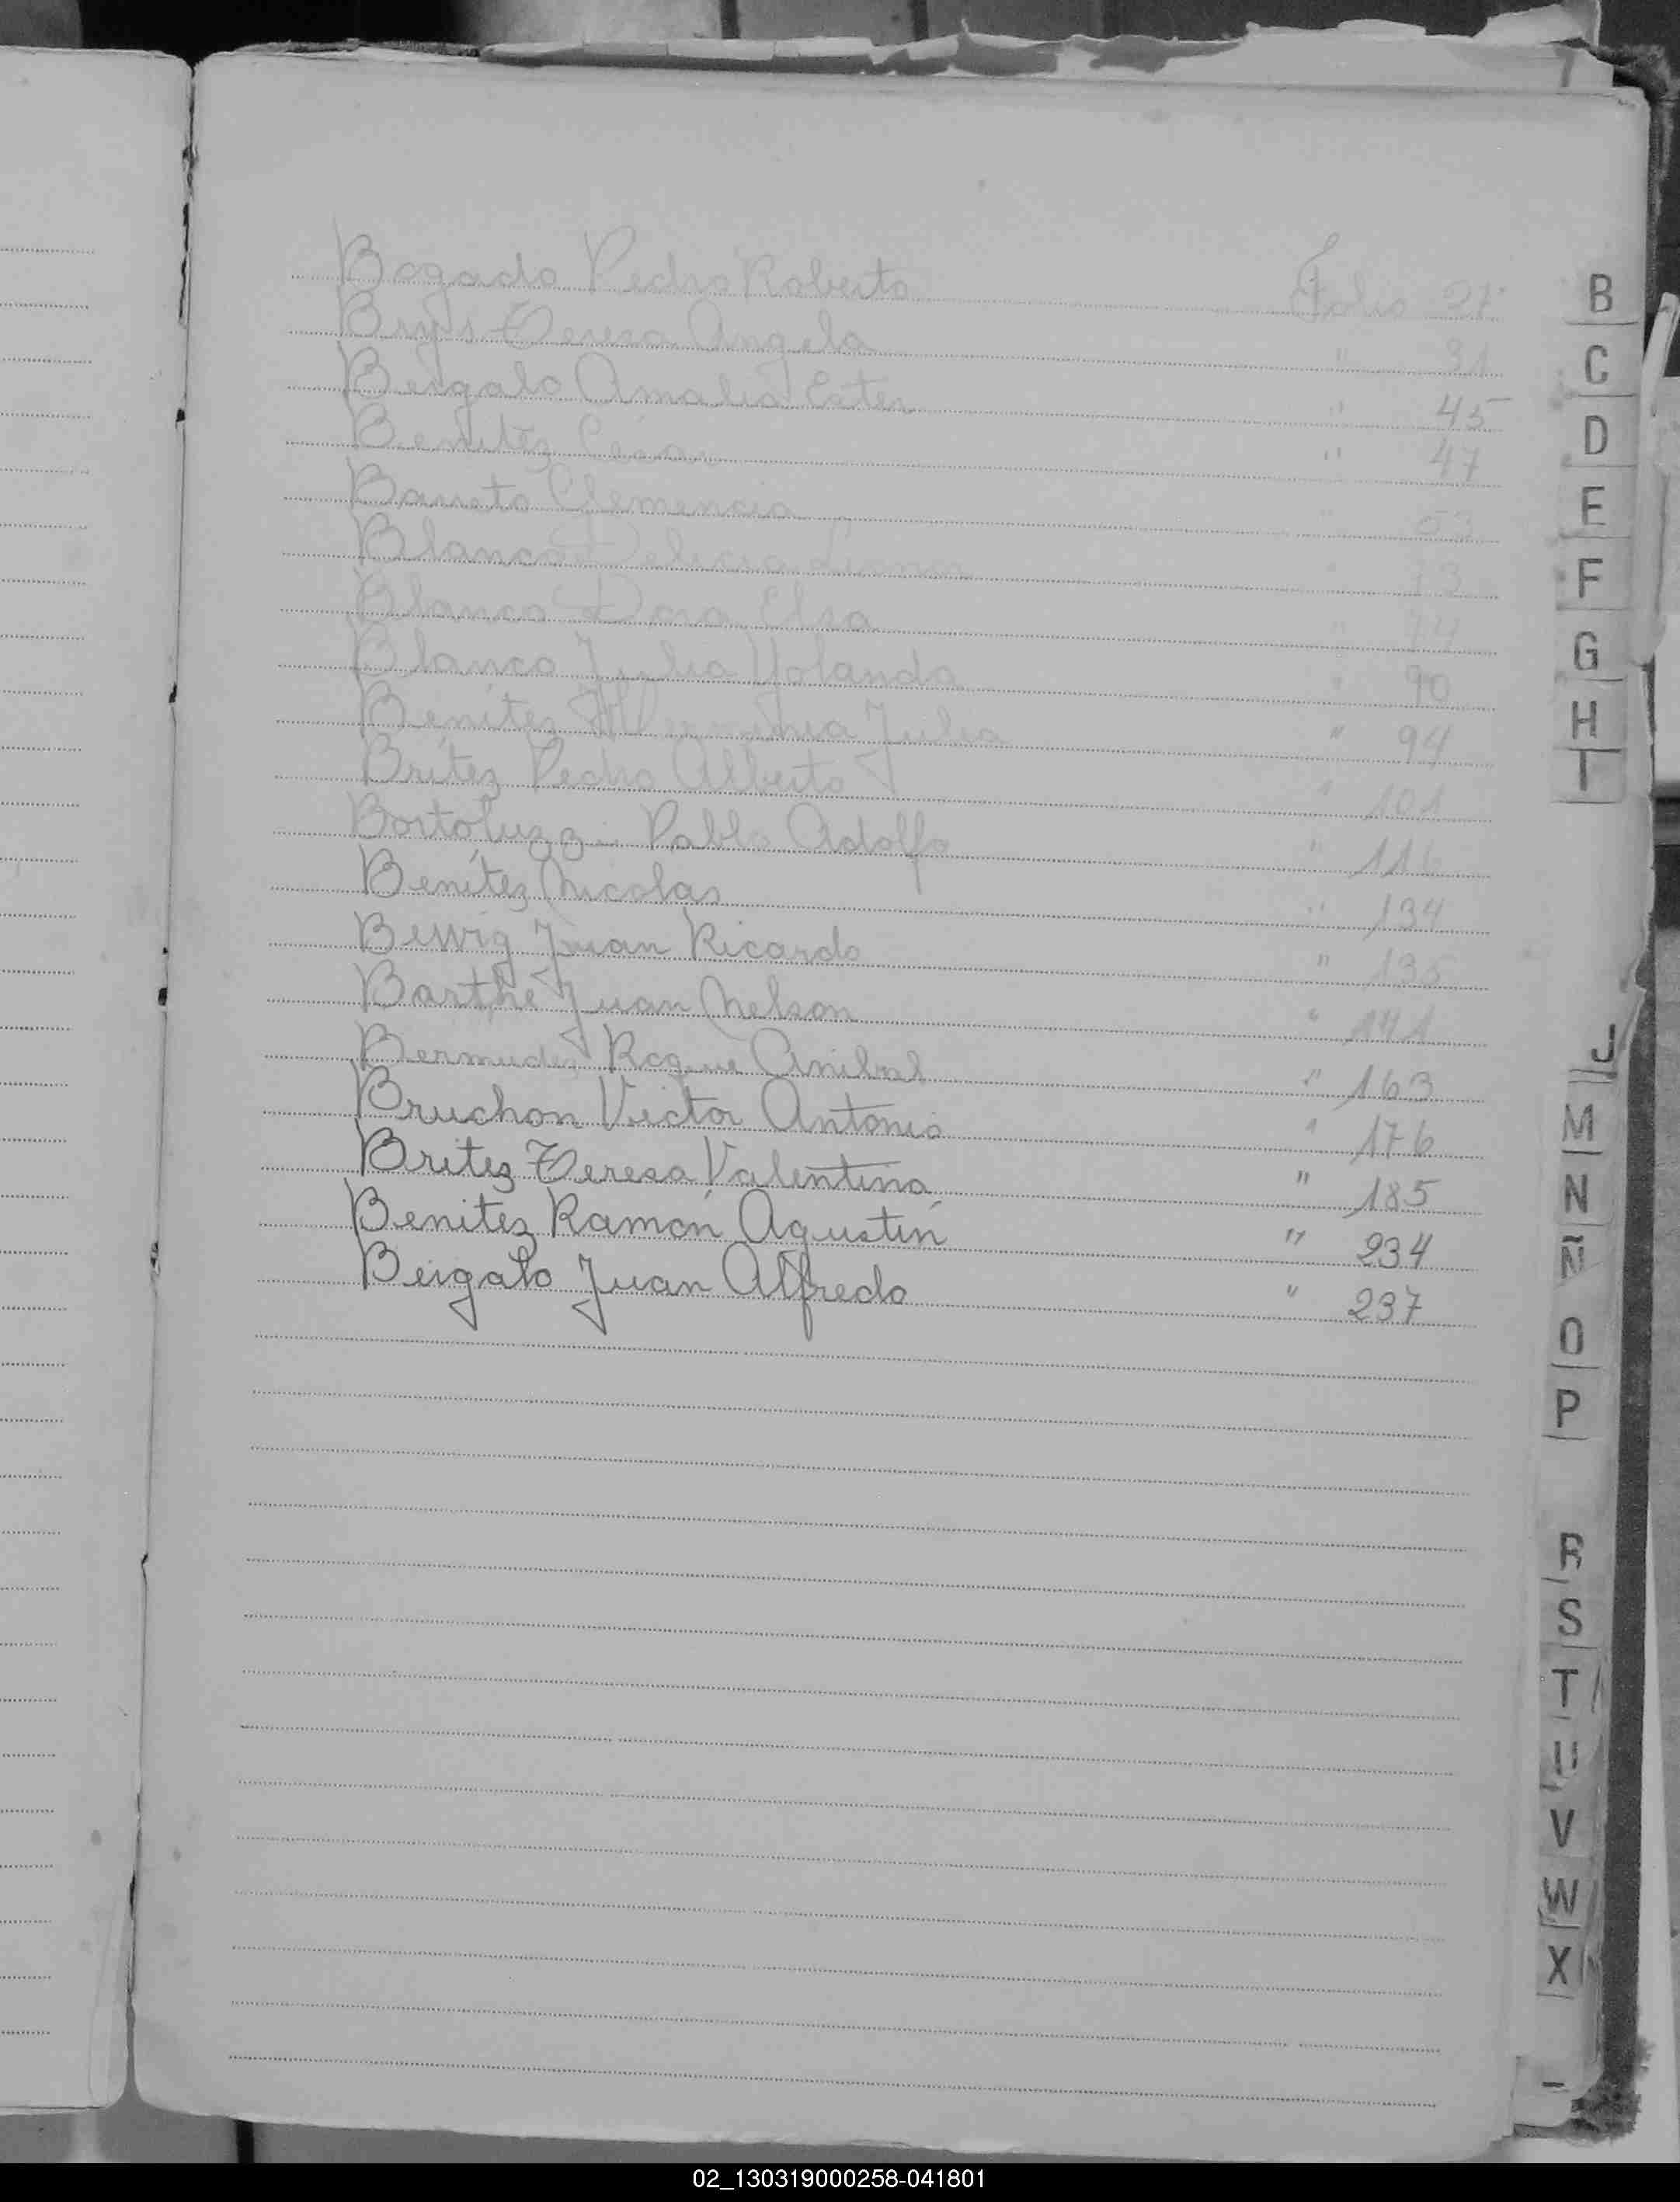 Bogado Pedro Roberto Folio 27
Brys Teresa Angela " 31
Beigalo Amalia Ester " 45
Benitez Cesar " 47
Barreto Clemencia 53
Blanco Delicia 73
Blanco Dora Elsa " 74
Blanco Julia Yolanda " 90
Benitez Julia " 94
Britez Pedro Alberto " 101
Bortoluzzi Pablo Adolfo " 116
Benítez Nicolas " 134
Bewig Juan Ricardo " 135
Barthe Juan Nelson " 141
Bermudez Roque Anibal " 163
Bruchon Victor Antonio " 176
Britez Teresa Valentina " 185
Benitez Ramón Agustín " 234
Beigalo Juan Alfredo " 237
B
C
D
E
F
G
H
J
M
N
Ñ
O
P
R
S
T
U
V
W
X
02_130319000258-041801